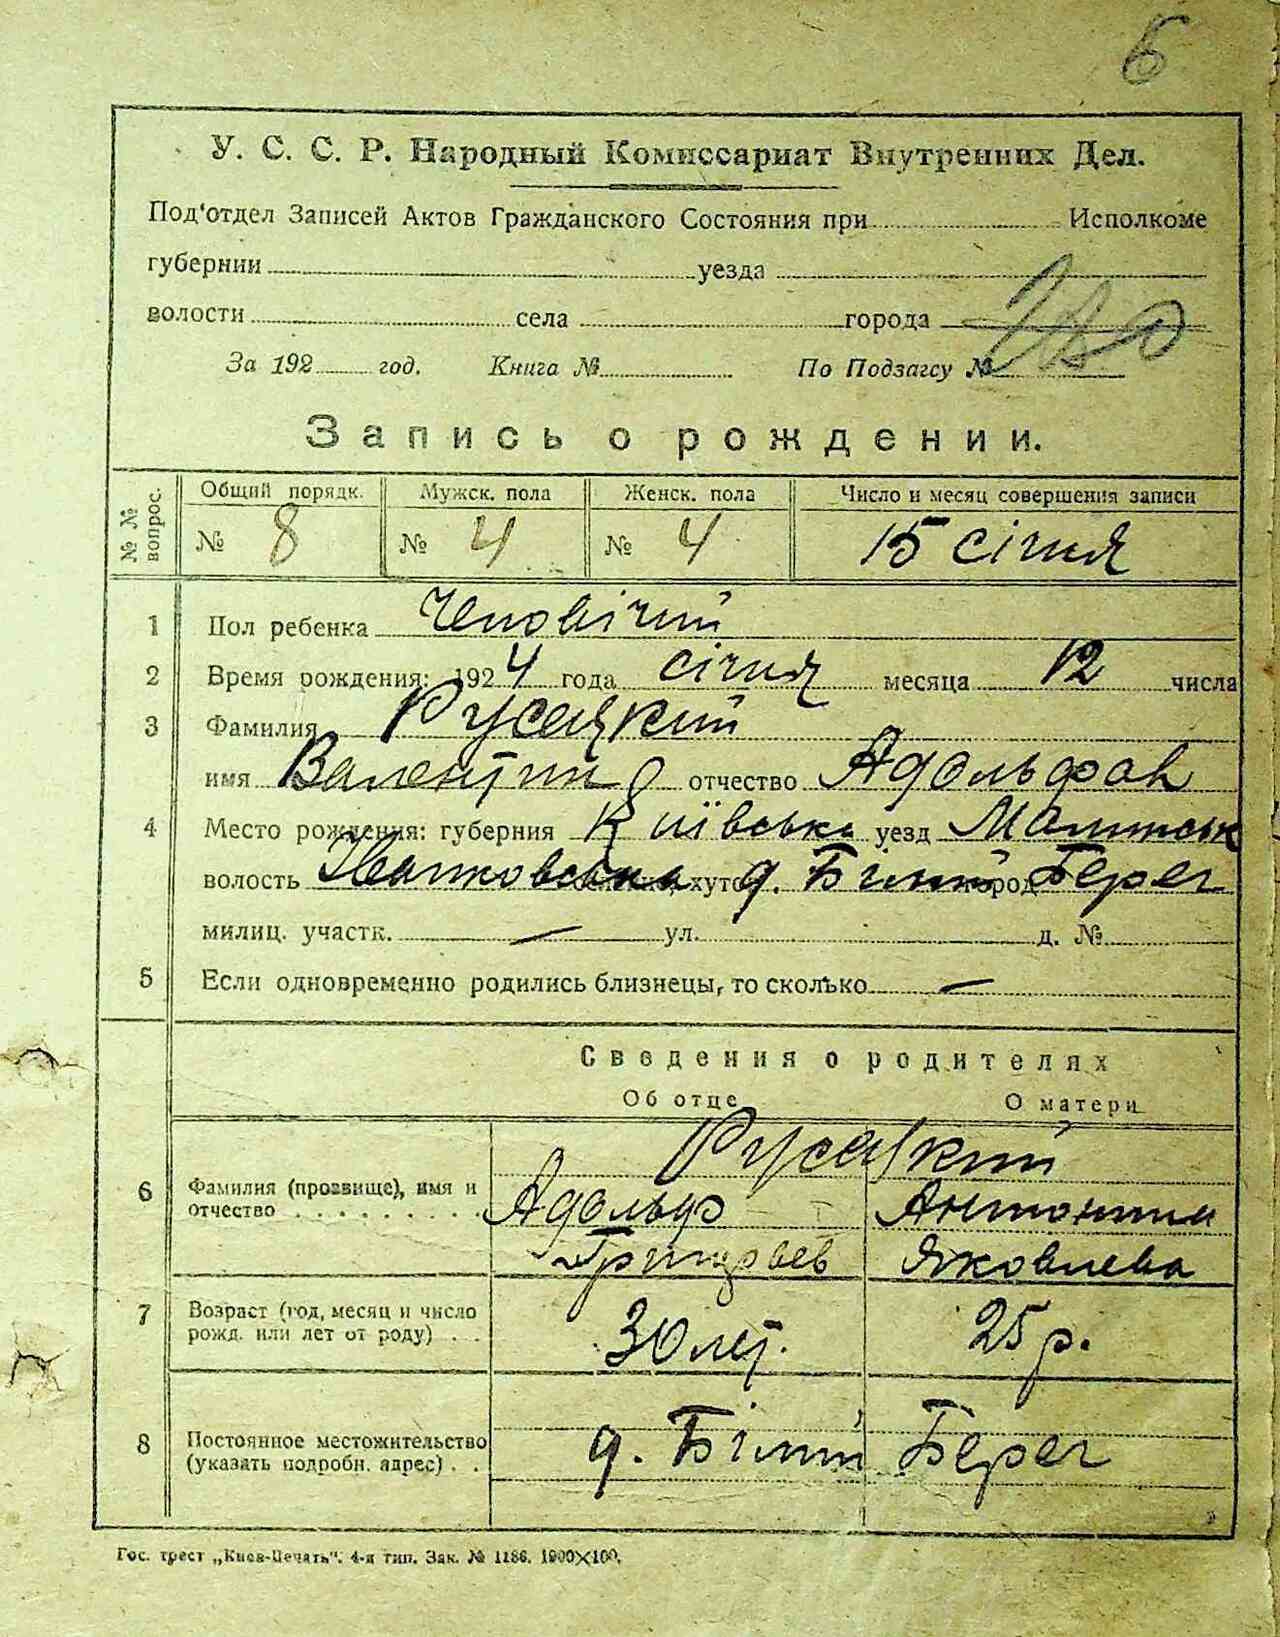 6
У. С. С. Р. Народный Комиссариат Внутренних Дел.
Под'отдел Записей Актов Гражданского Состояния при Исполкоме
губернии уезда
волости села города
За 192 год. Книга № По Подзагсу №
Запись о рождении.
№ № вопрос. Общий порядк. Мужск. пола Женск. пола Число и месяц совершения записи
№ 8 № 4 № 4 15 січня
1 Пол ребенка Чоловічий
2 Время рождения: 1924 года січня месяца 12 числа
3 Фамилия Русацкий
имя Валентин отчество Адольфов
4 Место рождения: губерния Київська уезд Малинськ
волость Іванковська хуто д. Білий город Берег
милиц. участк. — ул. д. №
5 Если одновременно родились близнецы, то сколько —
Сведения о родителях
Об отце О матери
Русацкий
6 Фамилия (прозвище), имя и отчество Адольф Антонина
Григорьев Яковлева
7 Возраст (год, месяц и число рожд. или лет от роду) 30 лет. 25 р.
8 Постоянное местожительство (указать подробн. адрес) д. Білий Берег
Гос. трест „Киев-Печать". 4-я тип. Зак. № 1186. 1900×100.